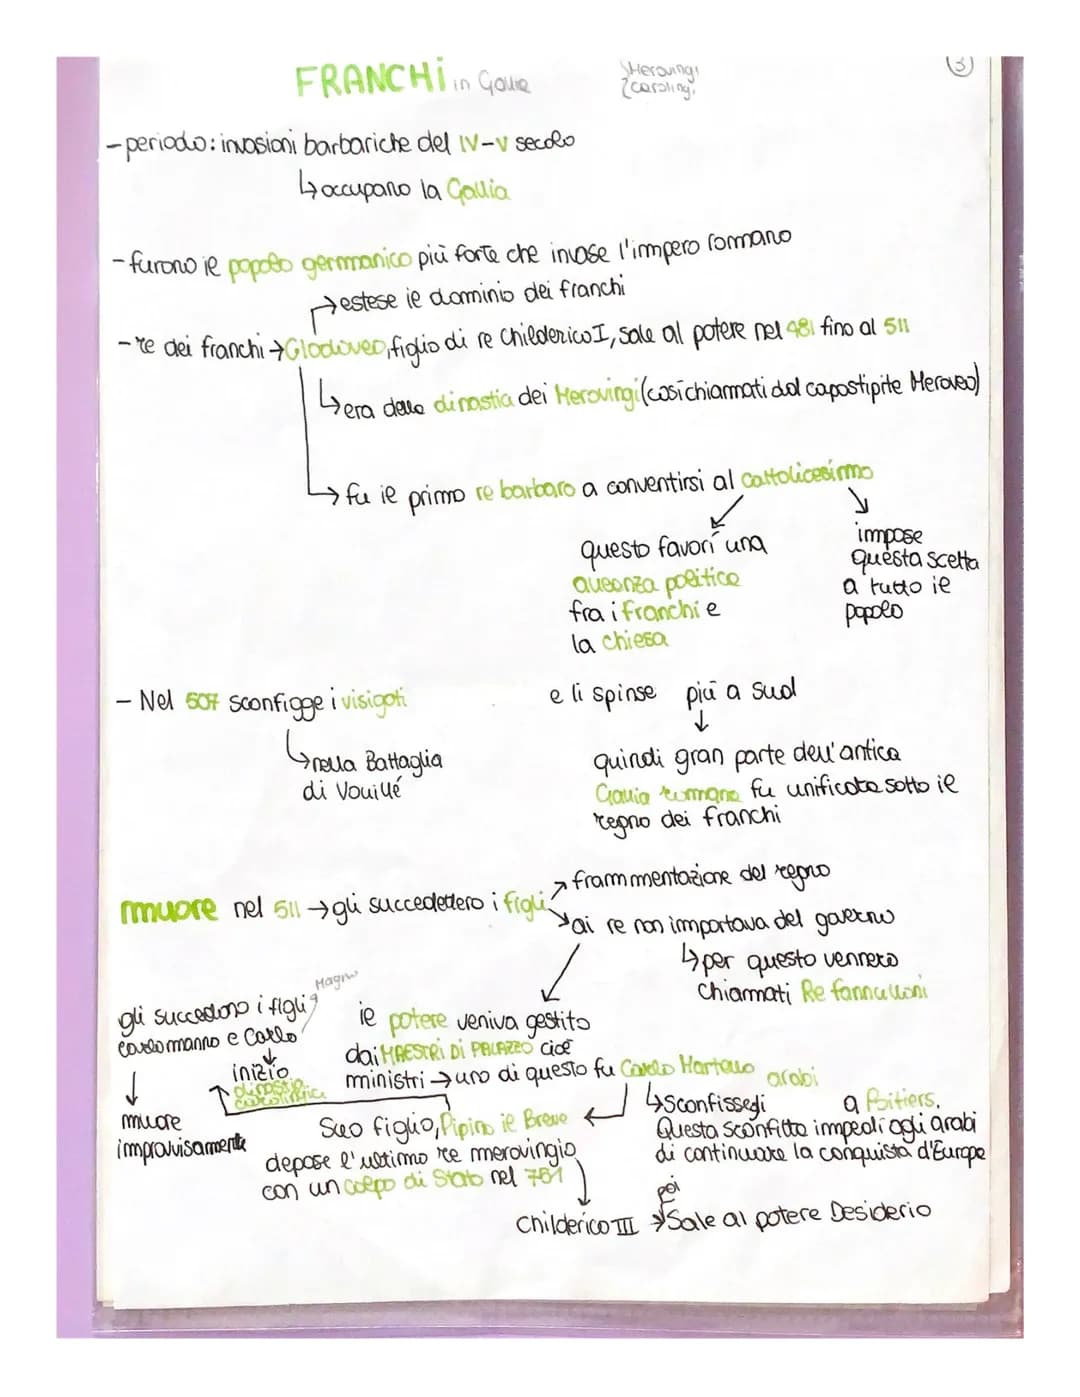 FRANCHI in Gallia
Merovingi
Carolingi
3
- periodo: invasioni barbariche del IV-V secolo
↳ occupano la Gallia
- furono il popolo germanico più forte che invase l'impero romano
→ estese il dominio dei franchi
- re dei franchi → Clodoveo, figlio di re Childerico I, sale al potere nel 481 fino al 511
↳ era della dinastia dei Merovingi (così chiamati dal capostipite Meroveo)
→ fu il primo re barbaro a conventirsi al cattolicesimo
questo favorì una
alleanza politica
fra i franchi e
la chiesa
impose
questa scelta
a tutto il
popolo
- Nel 507 sconfigge i visigoti e li spinse più a sud
↳ nella Battaglia
di Vouillé
quindi gran parte dell'antica
Gallia romana fu unificata sotto il
regno dei franchi
muore nel 511 → gli succedettero i figli
→ frammentazione del regno
→ ai re non importava del governo
↳ per questo vennero
chiamati Re fannulloni
il potere veniva gestito
dai MAESTRI DI PALAZZO cioè
ministri → uno di questo fu Carlo Martello
↳ sconfisse gli arabi a Poitiers.
Questa sconfitta impedì agli arabi
di continuare la conquista d'Europa
Suo figlio, Pipino il Breve
depose l'ultimo re merovingio
con un colpo di Stato nel 751
Childerico III
poi
→ Sale al potere Desiderio
Magno
gli succedono i figli
Carlomanno e Carlo
inizio
dinastia
carolingia
muore
improvvisamente